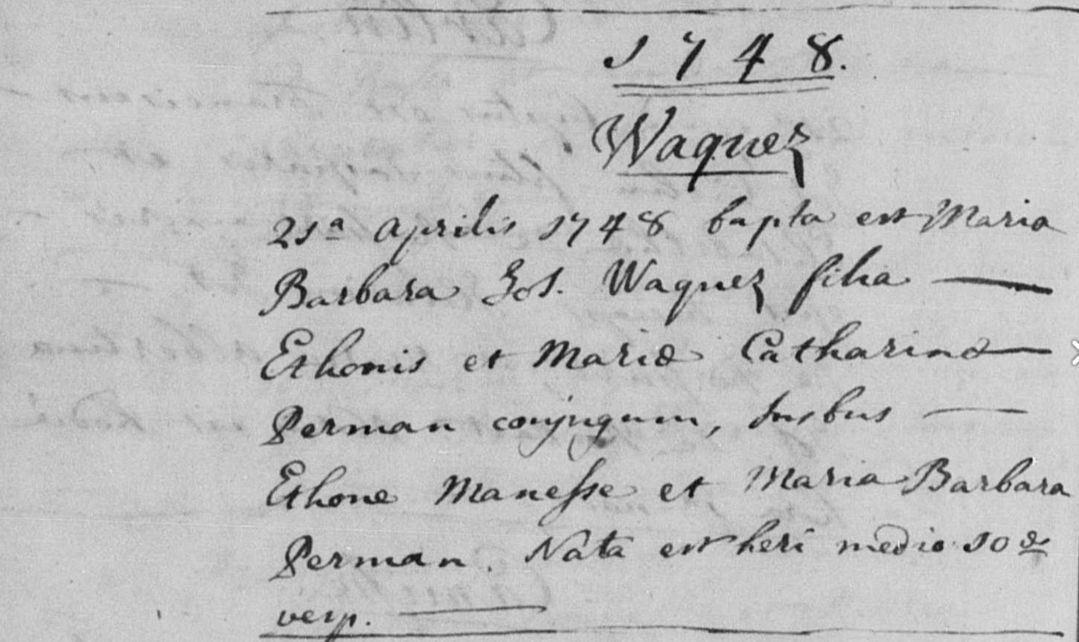 1748.
Waquez
21a aprilis 1748 bapta est Maria
Barbara Jos. Waquez filia
Ethonis et Mariæ Catharinæ
Perman conjugum, susbus
Ethone Manesse et Maria Barbara
Perman. Nata est heri medio 10æ
vesp.